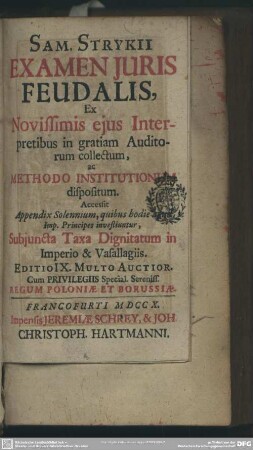 SAM. STRYKII
EXAMEN JURIS
FEUDALIS,
Ex
Novissimis ejus Inter-
pretibus in gratiam Audito-
rum collectum,
ac
METHODO INSTITUTIONUM
dispositum.
Accessit
Appendix Solennium, quibus hodie
Imp. Principes investiuntur,
Subjuncta Taxa Dignitatum in
Imperio & Vasallagiis.
EDITIO IX. MULTO AUCTIOR.
Cum PRIVILEGIIS Special. Sereniss.
REGUM POLONIÆ ET BORUSSIÆ.
FRANCOFURTI MDCCX.
Impensis JEREMIÆ SCHREY, & JOH.
CHRISTOPH. HARTMANNI.